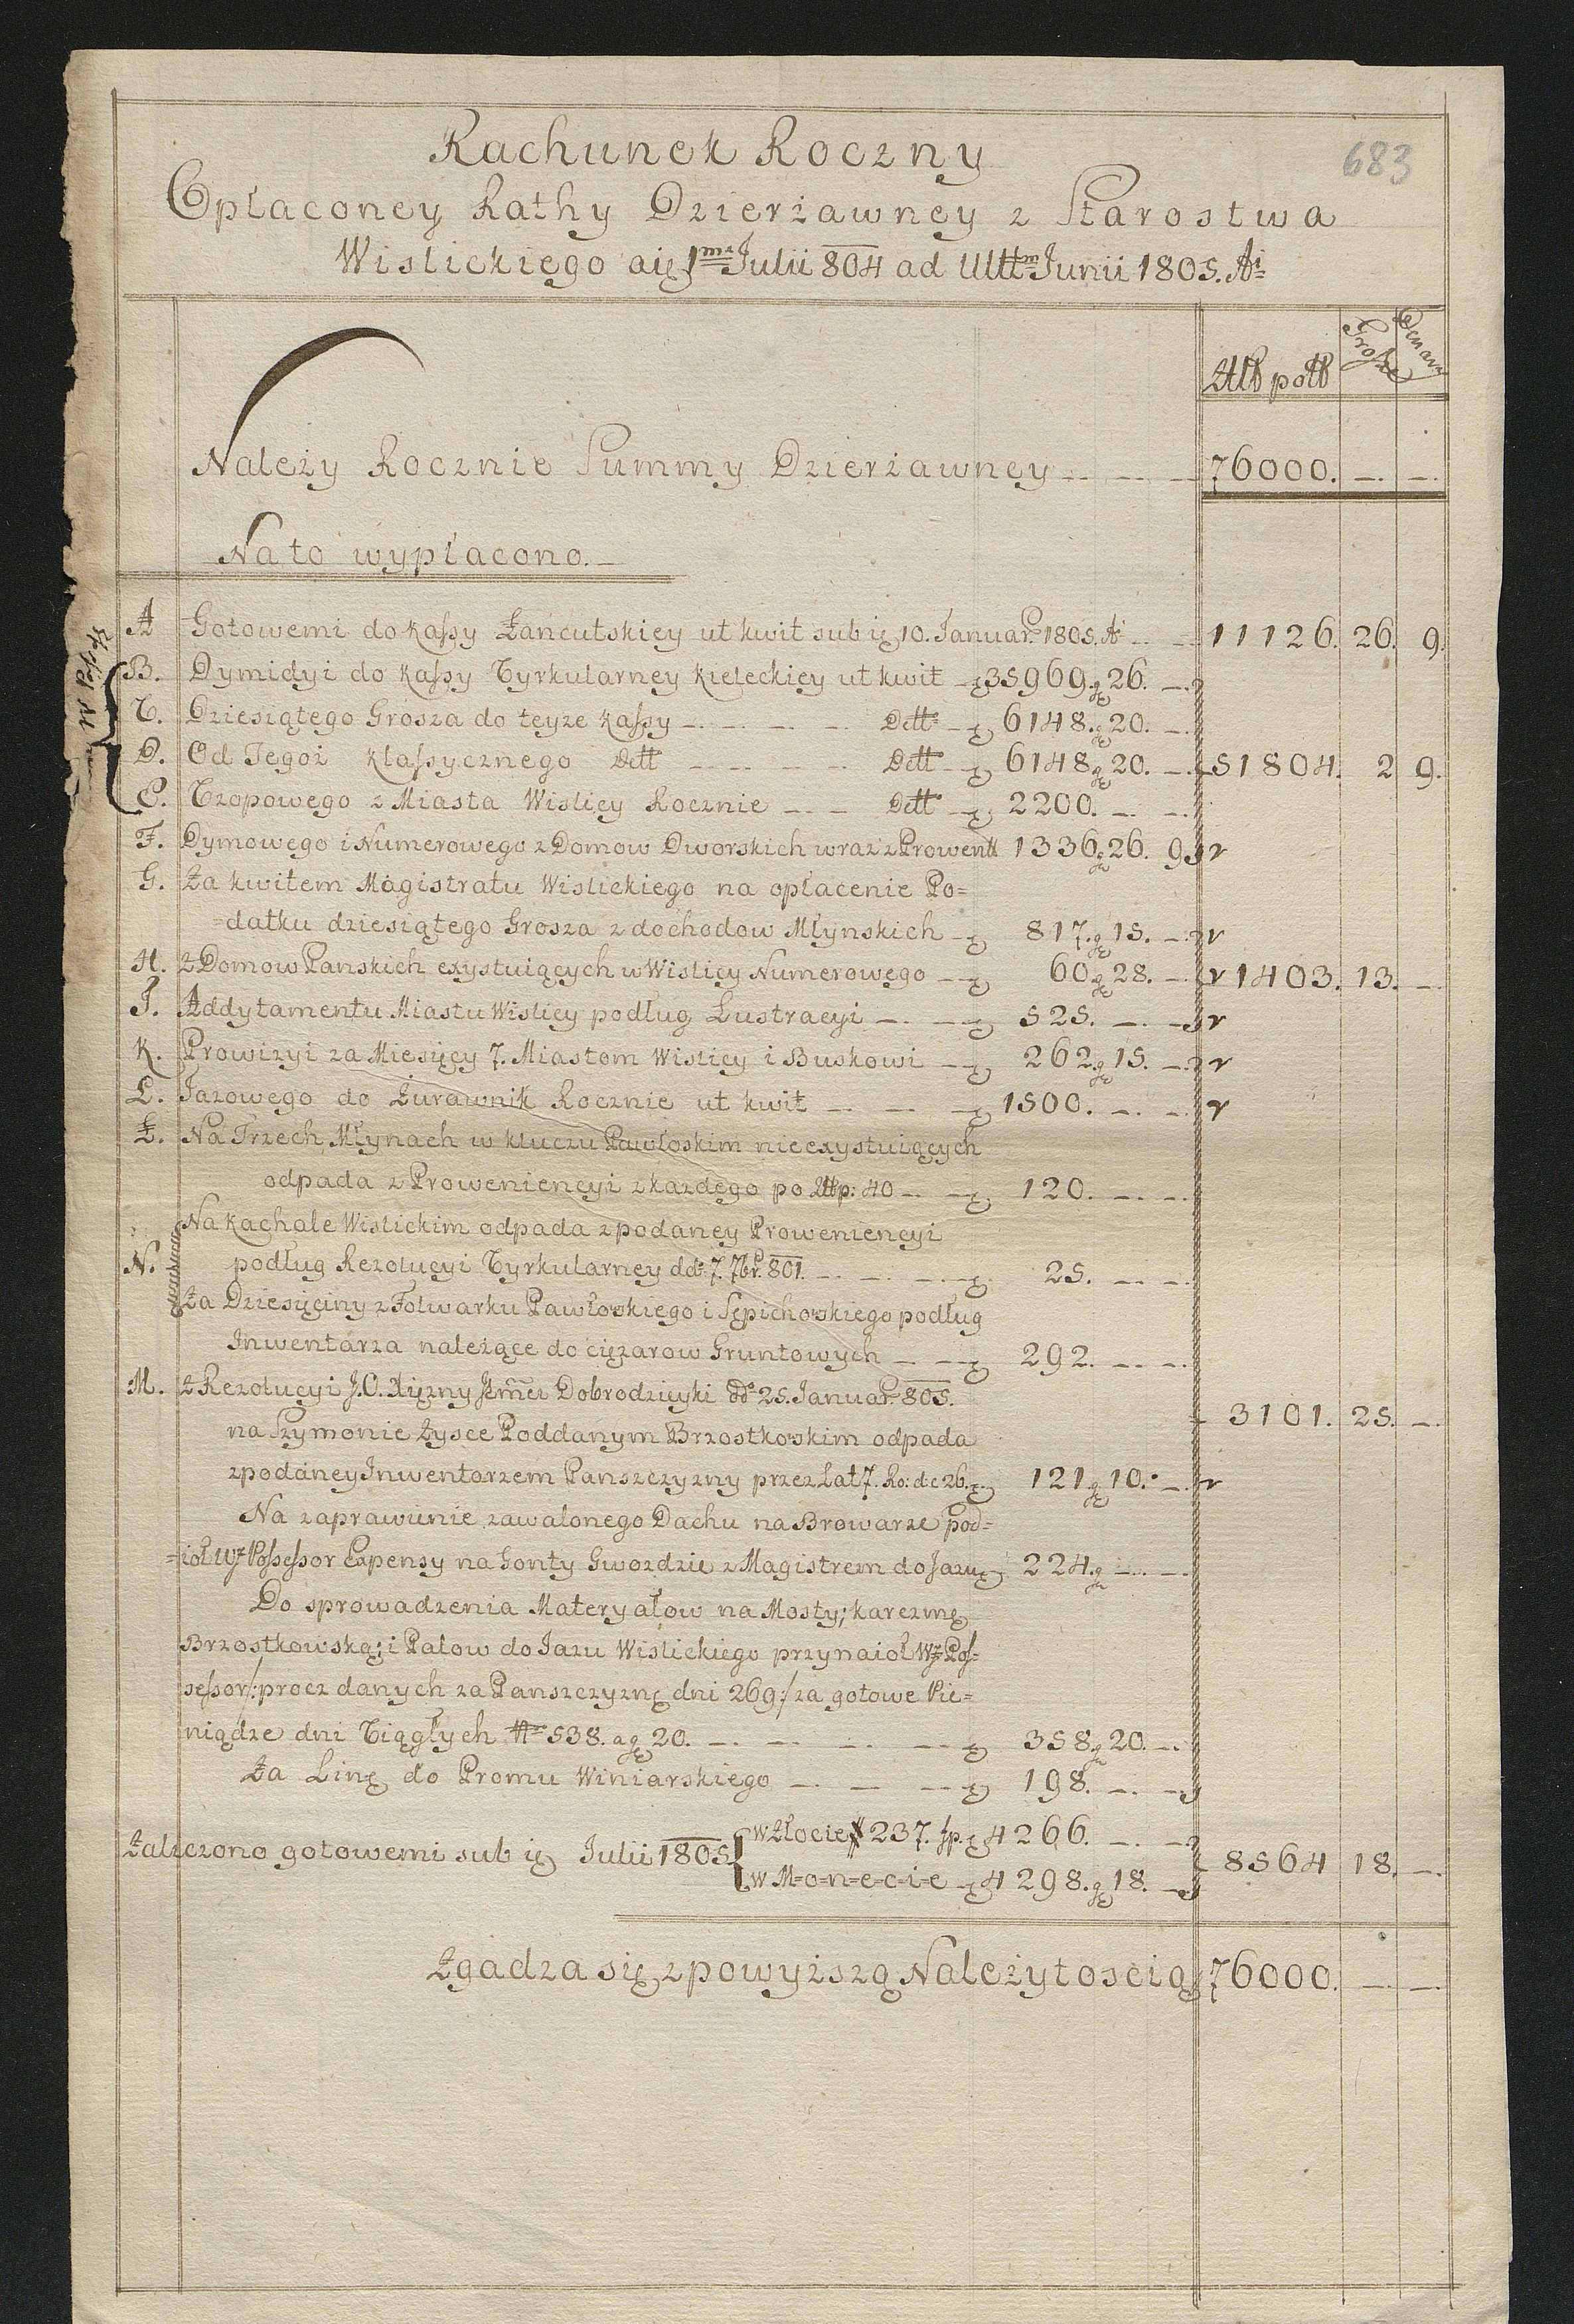 683
Rachunek Roczny
Opłaconey Rathy Dzierżawney z Starostwa
Wislickiego a 1ma Julii 804 ad Ultt Junii 1805. Ai
Złł poll
Grosze
Denary
Należy Rocznie Summy Dzierżawney 76000. — —
Na to wypłacono.
A Gotowemi do Kassy Łancutskiey ut kwit sub 10. Januar. 1805. A 11126. 26. 9.
B. Dymidyi do Kassy Cyrkularney Kieleckiey ut kwit 35969. g 26. —
C. Dziesiątego Grosza do teyze Kassy Dett 6148. g 20. —
D. Od Tegoż Klassycznego Dett Dett 6148 g 20. — 51804. 2 9.
E. Czopowego z Miasta Wislicy Rocznie Dett 2200. — —
F. Dymowego i Numerowego z Domow Dworskich wraz z Prowentt 1336 g 26. 9
G. Za kwitem Magistratu Wislickiego na opłacenie Po=
=datku dziesiątego Grosza z dochodow Młynskich 817. g 15. —
H. z Domow Panskich exystuiących w Wislicy Numerowego 60 g 28. — 1403. 13. —
J. Addytamentu Miastu Wislicy podług Lustracyi 525. — —
K. Prowizyi za Miesięcy 7. Miastom Wislicy i Buskowi 262 g 15. —
L. Jazowego do Żurawnik Rocznie ut kwit 1500. — —
Ł. Na Trzech Młynach w kluczu Pawłoskim nieexystuiących
odpada z Proweniencyi z kazdego po Złłp: 40 120. — —
Na Kachale Wislickim odpada z podaney Proweniencyi
N. podług Rezolucyi Cyrkularney dd: 7. 7br. 801. 25. — —
Za Dziesięciny z Folwarku Pawłowskiego i Sępichowskiego podług
Inwentarza należące do ciężarow Gruntowych 292. — —
M. z Rezolucyi J. O. Xiężny Jeimci Dobrodzieyki dd 25. Januar. 805. 3101. 25. —
na Szymonie Zysce Poddanym Brzostkowskim odpada
z podaney Inwentarzem Panszczyzny przez Lat 7. Ro: d: c 26. 121 g 10. —
Na zaprawienie zawalonego Dachu na Browarze pod=
=ioł WJ Possessor Expensy na Gonty Gwozdzie z Magistrem do Jazu 224. g — —
Do sprowadzenia Materyałow na Mosty; karczmę
Brzostkowską; i Palow do Jazu Wislickiego przynaioł WJ Pos=
sessor /: procz danych za Panszczyznę dni 269 :/ za gotowe Pie=
niądze dni Ciągłych 538. a g 20. 358 g 20. —
Za Linę do Promu Winiarskiego 198. — —
Zaliczono gotowemi sub Julii 1805. w Złocie # 237. 4266. — —
w M=o=n=e=c=i=e 4298. g 18. — 8564 18. —
Zgadza się z powyższą Należytoscią 76000. — —